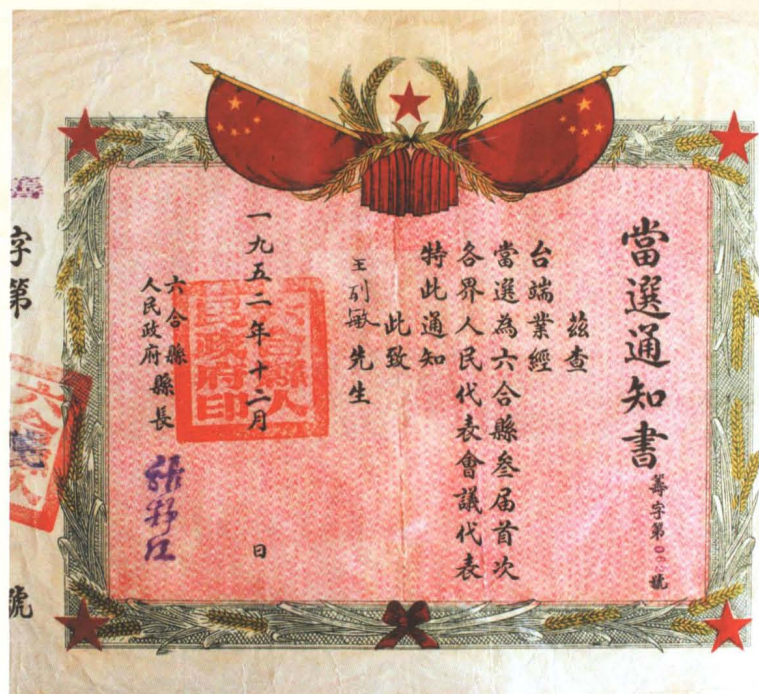 當選通知書
籌字第06號
茲查
台端業經
當選為六合縣叁届首次
各界人民代表會議代表
特此通知
此致
王利敏先生
一九五二年十二月 日
六合縣
人民政府縣長
六合縣人民政府印
字第 號